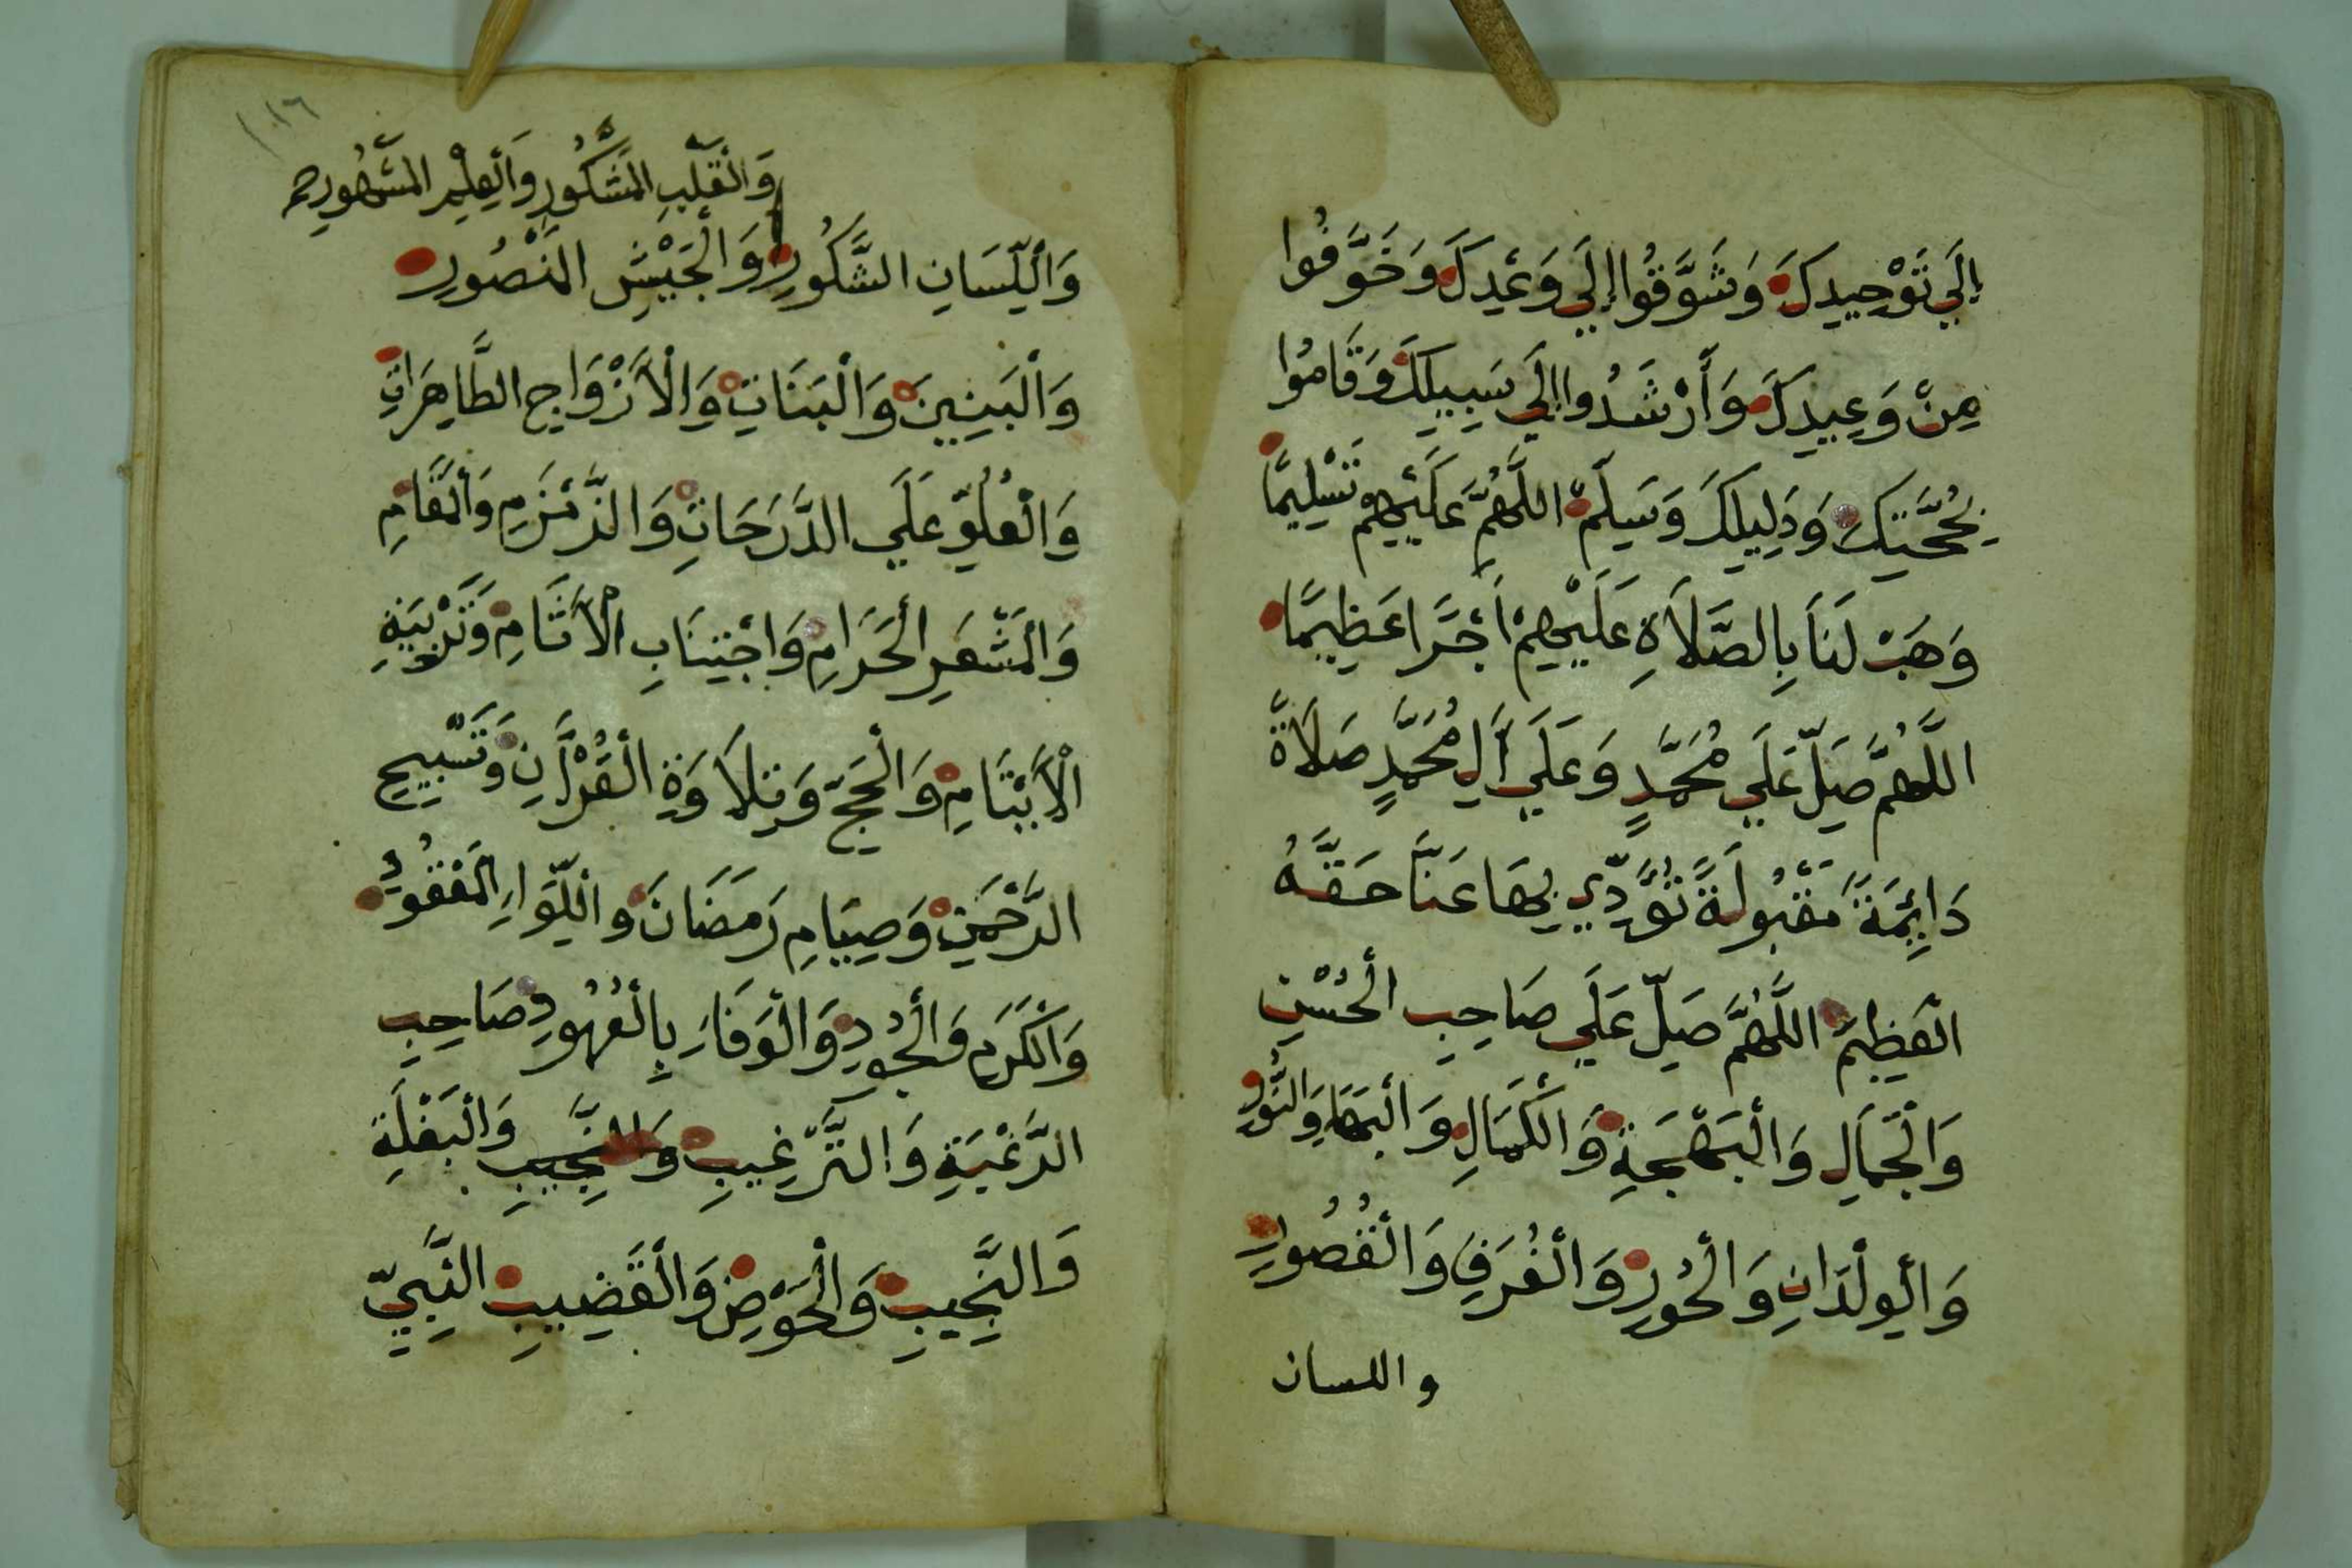 إِلَي تَوْحِيدِكَ وَشَوَّقُوا إِلَي وَعْدِكَ وَخَوَّفُوا
مِنْ وَعِيدِكَ وَأَرْشَدُوا إِلَي سَبِيلِكَ وَقَامُوا
بِحُجَّتِكَ وَدَلِيلِكَ وَسَلِّمْ اللَّهُمَّ عَلَيْهِمْ تَسْلِيمًا
وَهَبْ لَنَا بِالصَّلَاةِ عَلَيْهِمْ أَجْرًا عَظِيمًا
اللَّهُمَّ صَلِّ عَلَي مُحَمَّدٍ وَعَلَي أَلِ مُحَمَّدٍ صَلَاةً
دَايِمَةً مَقْبُولَةً تُؤَدِّي بِهَا عَنَّا حَقَّهُ
الْعَظِيمَ اللَّهُمَّ صَلِّ عَلَي صَاحِبِ الْحُسْنِ
وَالْجَمَالِ وَالْبَهْجَةِ وَالْكَمَالِ وَالْبَهَاءِ وَالنُّورِ
وَالْوِلْدَانِ وَالْحُورِ وَالْغُرَفِ وَالْقُصُورِ
واللسان
١٠١٦
وَالْقَلْبِ الْمَشْكُورِ وَالْعِلْمِ الْمَشْهُورِ صح
وَاللِّسَانِ الشَّكُورِ وَالْجَيْشِ الْمَنْصُورِ
وَالْبَنِينَ وَالْبَنَاتِ وَالْأَزْوَاجِ الطَّاهِرَاتِ
وَالْعُلُوِّ عَلَي الدَّرَجَاتِ وَالزَّمْزَمِ وَالْمَقَامِ
وَالْمَشْعَرِ الْحَرَامِ وَاجْتِنَابِ الْأَثَامِ وَتَرْبِيَةِ
الْأَيْتَامِ وَالْحَجِّ وَتِلَاوَةِ الْقُرْأَنِ وَتَسْبِيحِ
الرَّحْمَنِ وَصِيَامِ رَمَضَانَ وَاللِّوَاءِ الْمَعْقُودِ
وَالْكَرَمِ وَالْجُودِ وَالْوَفَاءِ بِالْعُهُودِ صَاحِبِ
الرَّغْبَةِ وَالتَّرْغِيبِ وَالنَّجِيبِ وَالْبَغْلَةِ
وَالنَّجِيبِ وَالْحَوْضِ وَالْقَضِيبِ النَّبِيِّ